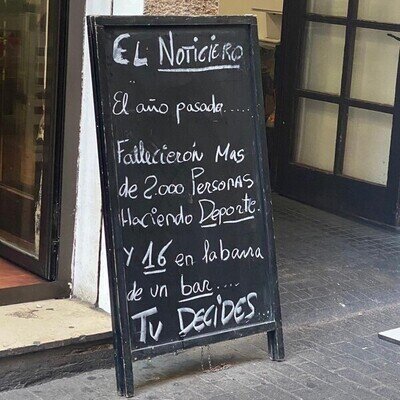 EL NOTICIERO
El año pasado.....
Fallecierón Mas
de 2.000 PERSONAS
Haciendo DEPORTE.
Y 16 en la barra
de un bar....
TU DECIDES...